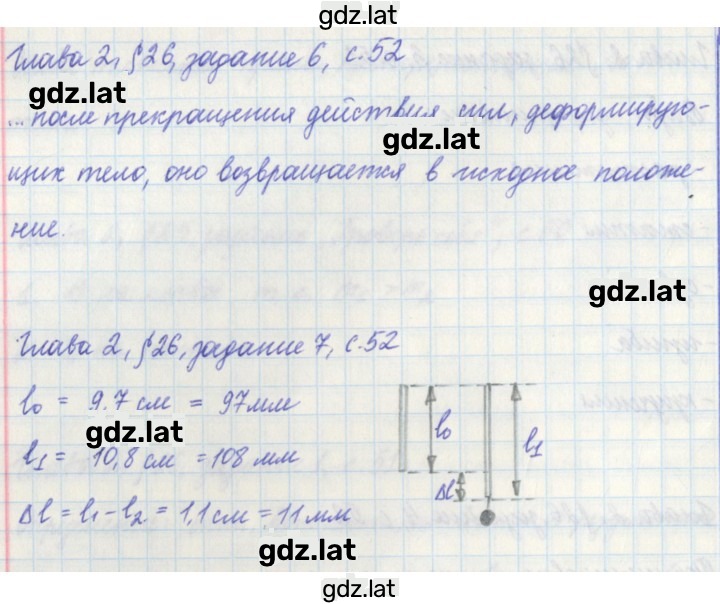 gdz.lat
Глава 2, §26, задание 6, с.52
gdz.lat
...после прекращения действия сил, деформирую-
gdz.lat
щих тело, оно возвращается в исходное положе-
ние.
gdz.lat
Глава 2, §26, задание 7, с.52
l₀ = 9.7 см = 97мм
gdz.lat
l₁ = 10,8 см = 108 мм
Δl = l₁ - l₂ = 1,1 см = 11 мм
l₀
l₁
Δl
gdz.lat
gdz.lat